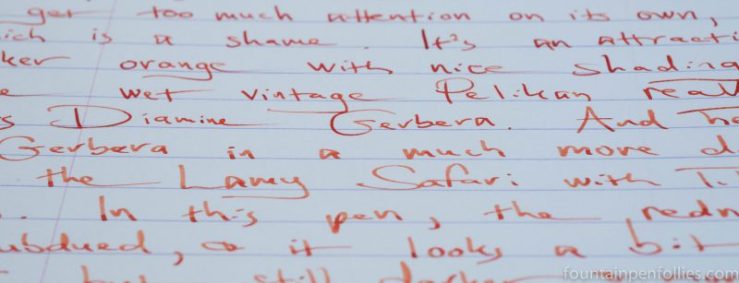 get too much attention on its own,
ich is a shame. It's an attracti
ker orange with nice shading
e wet vintage Pelikan real
s Diamine Gerbera. And he
Gerbera in a much more d
the Lamy Safari with
. In this pen, the redn
ubdued, so it looks a bit
but still darker
fountainpenfollies.com